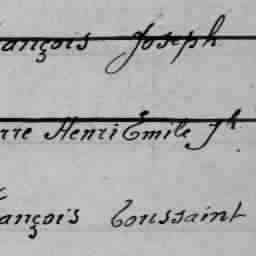 ançois Joseph
rre Henri Emile Jh
ançois Toussaint